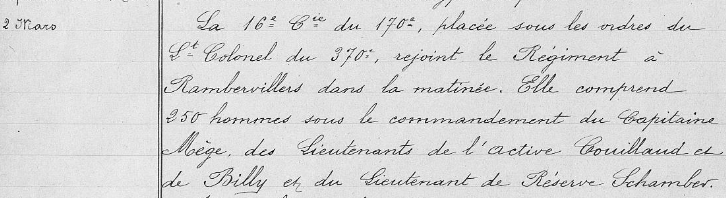 2 Mars
La 16e Cie du 170e, placée sous les ordres du
Lt Colonel du 370e, rejoint le Régiment à
Rambervillers dans la matinée. Elle comprend
250 hommes sous le commandement du Capitaine
Mège, des Lieutenants de l'active Couillaud et
de Billy et du Lieutenant de Réserve Schamber.